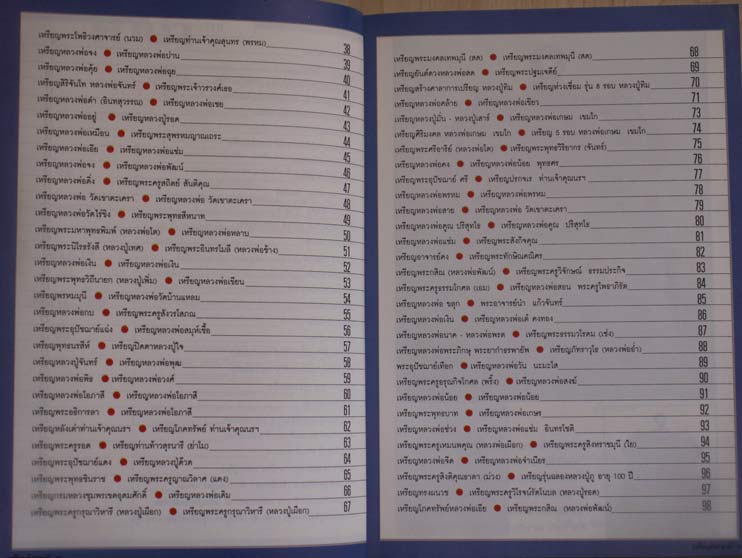 เหรียญพระโพธิวงศาจารย์ (นวม) ● เหรียญท่านเจ้าคุณสุนทร (พรหม) 38
เหรียญหลวงพ่อจง ● เหรียญหลวงพ่อปาน 39
เหรียญหลวงพ่อคุ้ย ● เหรียญหลวงพ่อฉุย 40
เหรียญสิริจันโท หลวงพ่อจันทร์ ● เหรียญพระเจ้าวรวงศ์เธอ 41
เหรียญหลวงพ่อดำ (อินทสุวรรณ) ● เหรียญหลวงพ่อเชย 42
เหรียญหลวงพ่ออยู่ ● เหรียญหลวงปู่รอด 43
เหรียญหลวงพ่อเหมือน ● เหรียญพระสุพรหมญาณเถระ 44
เหรียญหลวงพ่อเฮีย ● เหรียญหลวงพ่อแช่ม 45
เหรียญหลวงพ่อจง ● เหรียญหลวงพ่อพัฒน์ 46
เหรียญหลวงพ่อติ่ง ● เหรียญพระครูสถิตย์ สันติคุณ 47
เหรียญหลวงพ่อ วัดเขาตะเครา ● เหรียญหลวงพ่อ วัดเขาตะเครา 48
เหรียญหลวงพ่อวัดไร่ขิง ● เหรียญพระพุทธสีหนาท 49
เหรียญพระมหาพุทธพิมพ์ (หลวงพ่อโต) ● เหรียญหลวงพ่อหลาบ 50
เหรียญพระนิโรธรังสี (หลวงปู่เทศ) ● เหรียญพระอินทรโมลี (หลวงพ่อช้าง) 51
เหรียญหลวงพ่อเงิน ● เหรียญหลวงพ่อเงิน 52
เหรียญพระพุทธวิถีนายก (หลวงปู่เพิ่ม) ● เหรียญหลวงพ่อเขียน 53
เหรียญพรหมมุนี ● เหรียญหลวงพ่อวัดบ้านแหลม 54
เหรียญหลวงพ่อกบ ● เหรียญพระครูสังวรโสภณ 55
เหรียญพระอุปัชฌาย์แฉ่ง ● เหรียญหลวงพ่อสมุห์เชื้อ 56
เหรียญพุทธนรสีห์ ● เหรียญปิดตาหลวงปู่ใจ 57
เหรียญหลวงปู่จันทร์ ● เหรียญหลวงพ่อพุฒ 58
เหรียญหลวงพ่อพิธ ● เหรียญหลวงพ่อวงศ์ 59
เหรียญหลวงพ่อโอภาสี ● เหรียญหลวงพ่อโอภาสี 60
เหรียญพระอธิการลา ● เหรียญหลวงพ่อโอภาสี 61
เหรียญหลังเต่าท่านเจ้าคุณนรฯ ● เหรียญโภคทรัพย์ ท่านเจ้าคุณนรฯ 62
เหรียญพระครูรอด ● เหรียญท่านท้าวสุรนารี (ย่าโม) 63
เหรียญพระอุปัชฌาย์แดง ● เหรียญหลวงปู่ด้วด 64
เหรียญพระพุทธชินราช ● เหรียญพระครูญาณวิลาศ (แดง) 65
เหรียญกรมหลวงชุมพรเขตอุดมศักดิ์ ● เหรียญหลวงพ่อเดิม 66
เหรียญพระครูกรุณาวิหารี (หลวงปู่เผือก) ● เหรียญพระครูกรุณาวิหารี (หลวงปู่เผือก) 67
เหรียญพระมงคลเทพมุนี (สด) ● เหรียญพระมงคลเทพมุนี (สด) 68
เหรียญยันต์ดวงหลวงพ่อสด ● เหรียญพระปฐมเจดีย์ 69
เหรียญสร้างศาลาการเปรียญ หลวงปู่ทิม ● เหรียญห่วงเชื่อม รุ่น 8 รอบ หลวงปู่ทิม 70
เหรียญหลวงพ่อคล้าย ● เหรียญหลวงพ่อเขียว 71
เหรียญหลวงปู่มั่น - หลวงปู่เสาร์ ● เหรียญหลวงพ่อเกษม เขมโก 73
เหรียญศิริมงคล หลวงพ่อเกษม เขมโก ● เหรียญ 5 รอบ หลวงพ่อเกษม เขมโก 74
เหรียญพระศรีอาริย์ (หลวงพ่อโต) ● เหรียญพระพุทธวิริยากร (จันทร์) 75
เหรียญหลวงพ่อคง ● เหรียญหลวงพ่อน้อย พุทธศร 76
เหรียญพระอุปัชฌาย์ ศรี ● เหรียญปรกจเร ท่านเจ้าคุณนรฯ 77
เหรียญหลวงพ่อพรหม ● เหรียญหลวงพ่อพรหม 78
เหรียญหลวงพ่อสาย ● เหรียญหลวงพ่อ วัดเขาตะเครา 79
เหรียญหลวงพ่อคูณ ปริสุทโธ ● เหรียญหลวงพ่อคูณ ปริสุทโธ 80
เหรียญหลวงพ่อแช่ม ● เหรียญพระสังกิจคุณ 81
เหรียญอาจารย์คง ● เหรียญพระทักษิณคณิศร 82
เหรียญพระกสิณ (หลวงพ่อพัฒน์) ● เหรียญพระครูวิจักษณ์ ธรรมประกิจ 83
เหรียญพระครูธรรมโกศล (เอม) ● เหรียญหลวงพ่อสอน พระครูไพอาภิรัต 84
เหรียญหลวงพ่อ ขลุก ● เหรียญพระอาจารย์นำ แก้วจันทร์ 85
เหรียญหลวงพ่อเงิน ● เหรียญหลวงพ่อเต๋ คงทอง 86
เหรียญหลวงพ่อนาค - หลวงพ่อพรต ● เหรียญพระธรรมวโรดม (เซ่ง) 87
เหรียญหลวงพ่อพระภิกษุ พระยากำธรพายัพ ● เหรียญภัทราวุโธ (หลวงพ่ออ่ำ) 88
พระอุปัชฌาย์เทือก ● เหรียญหลวงพ่อวัน นะมะโส 89
เหรียญพระครูอรุณกิจโกศล (พริ้ง) ● เหรียญหลวงพ่อสงฆ์ 90
เหรียญหลวงพ่อน้อย ● เหรียญหลวงพ่อน้อย 91
เหรียญพระพุทธบาท ● เหรียญหลวงพ่อเกษร 92
เหรียญหลวงพ่อช่วง ● เหรียญหลวงพ่อแช่ม อินทโชติ 93
เหรียญพระครูเหมนพคุณ (หลวงพ่อเผือก) ● เหรียญพระครูสิงหราชมุนี (ใย) 94
เหรียญหลวงพ่อจีด ● เหรียญหลวงพ่อจำเนียร 95
เหรียญพระครูสิงคิคุณธาดา (ม่วง) ● เหรียญรุ่นฉลองหลวงปู่ภู อายุ 100 ปี 96
เหรียญทรงผนวช ● เหรียญพระครูวิโรจน์รัตโนบล (หลวงปู่รอด) 97
เหรียญโภคทรัพย์หลวงพ่อเฮีย ● เหรียญพระกสิณ (หลวงพ่อพัฒน์) 98